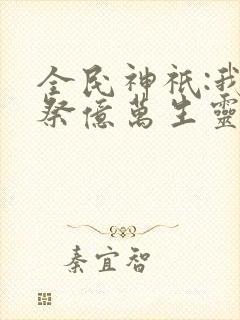 全民神祇:我
祭億萬生靈
秦宜智